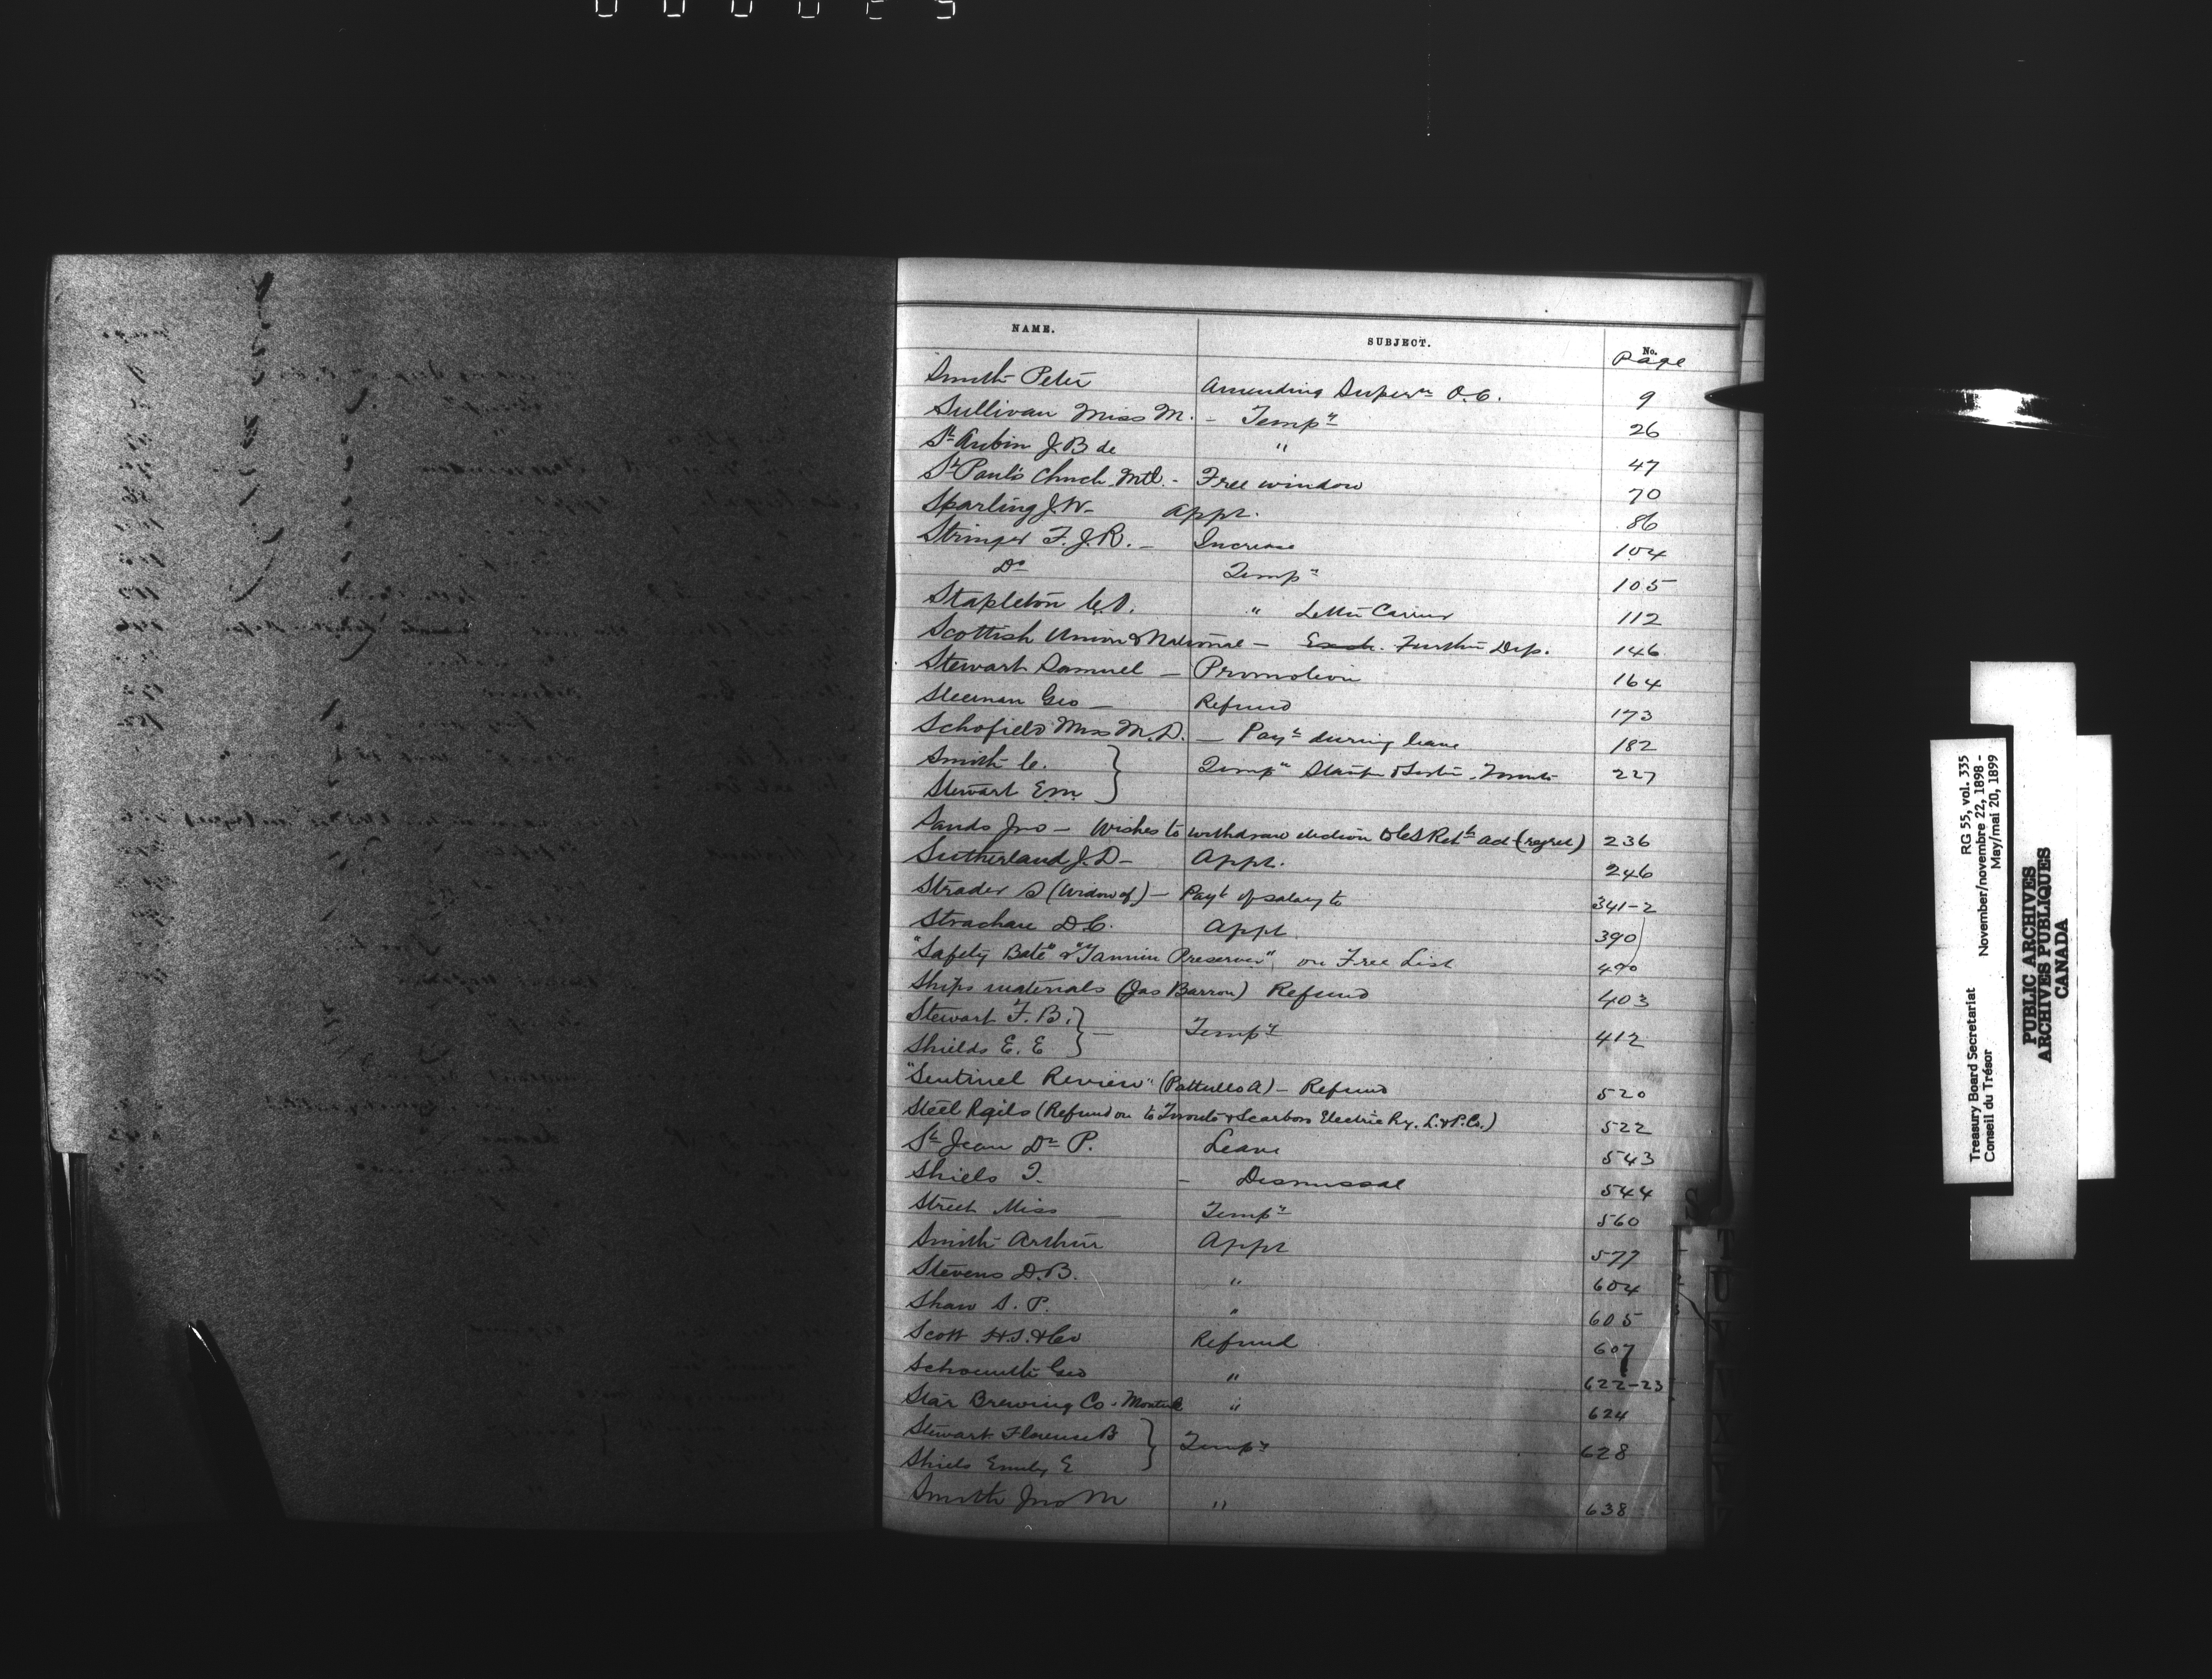 NAME. SUBJECT. No. Page
Smith Peter Amending Super^n O.C. 9
Sullivan Miss M. - Temp^y 26
S^t Aubin J.B de " 47
S^t Paul's Church Mtl. - Free window 70
Sparling J.W- Appt. 86
Stringer F.J.R. - Increase 104
D^o Temp^y 105
Stapleton " Letter Carrier 112
Scottish Union & National - Further Dep. 146
Stewart Samuel - Promotion 164
Sleeman Geo - Refund 173
Schofield Miss M.D. - Pay^t during leave 182
Smith C. } Temp^y Toronto 227
Stewart E.M.
Sands Jno - Wishes to withdraw election to C S Ret^t act (regret) 236
Sutherland J.D- Appt. 246
Strader S (Widow of) - Pay^t of salary to 341-2
Strachan D.C. Appt. 390
"Safety Bate" & "Tannin Preserver" on Free List 490
Ships materials (Jas Barron) Refund 403
Stewart F.B. } - Temp^y 412
Shields E.E
"Sentinel Review" (Pattullo A) - Refund 520
Steel Rails (Refund on to Toronto & Scarboro Electric Ry. L. & P. Co.) 522
S^t Jean D^r P. Leave 543
Shiels T. - Dismissal 544
Street Miss - Temp^y 560
Smith Arthur Appt 577
Stevens D.B. " 604
Shaw S.P. " 605
Scott H.S. & Co Refund 607
Geo " 622-23
Star Brewing Co. Montreal " 624
Stewart Florence B } Temp^y 628
Shiels Emily E
Smith Jno M " 638
S
T
U
Treasury Board Secretariat RG 55, vol. 335
Conseil du Trésor November/novembre 22, 1898 -
May/mai 20, 1899
PUBLIC ARCHIVES
ARCHIVES PUBLIQUES
CANADA